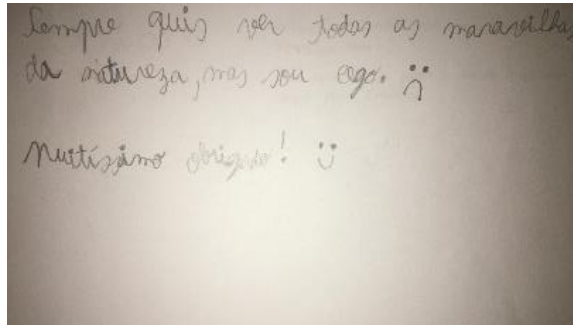 Sempre quis ver todas as maravilhas
da natureza, mas sou cego. :(
Muitíssimo obrigado! :)